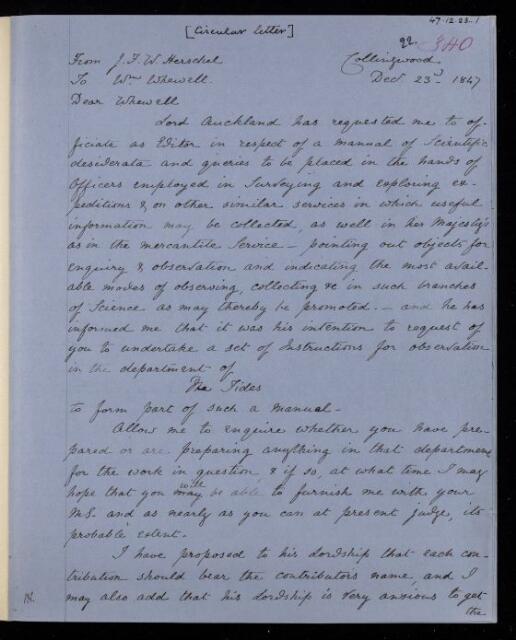 47.12.23.1
[Circular letter]
22. 340
From J. F. W. Herschel Collingwood
To Wm Whewell. Decr 23d 1847
Dear Whewell
Lord Auckland has requested me to of-
ficiate as Editor in respect of a manual of Scientific
desiderata and queries to be placed in the hands of
Officers employed in Surveying and exploring ex-
peditions & on other similar services in which useful
information may be collected, as well in her Majesty's
as in the mercantile Service – pointing out objects for
enquiry & observation and indicating the most avail-
able modes of observing, collecting &c in such branches
of Science as may thereby be promoted. – and he has
informed me that it was his intention to request of
you to undertake a set of Instructions for observation
in the department of
The Tides
to form part of such a manual –
Allow me to enquire whether you have pre-
pared or are preparing anything in that department
for the work in question, & if so, at what time I may
hope that you may will be able to furnish me with your
M.S. and as nearly as you can at present judge, its
probable extent. –
I have proposed to his Lordship that each con-
tribution should bear the contributors name, and I
may also add that his Lordship is very anxious to get
the